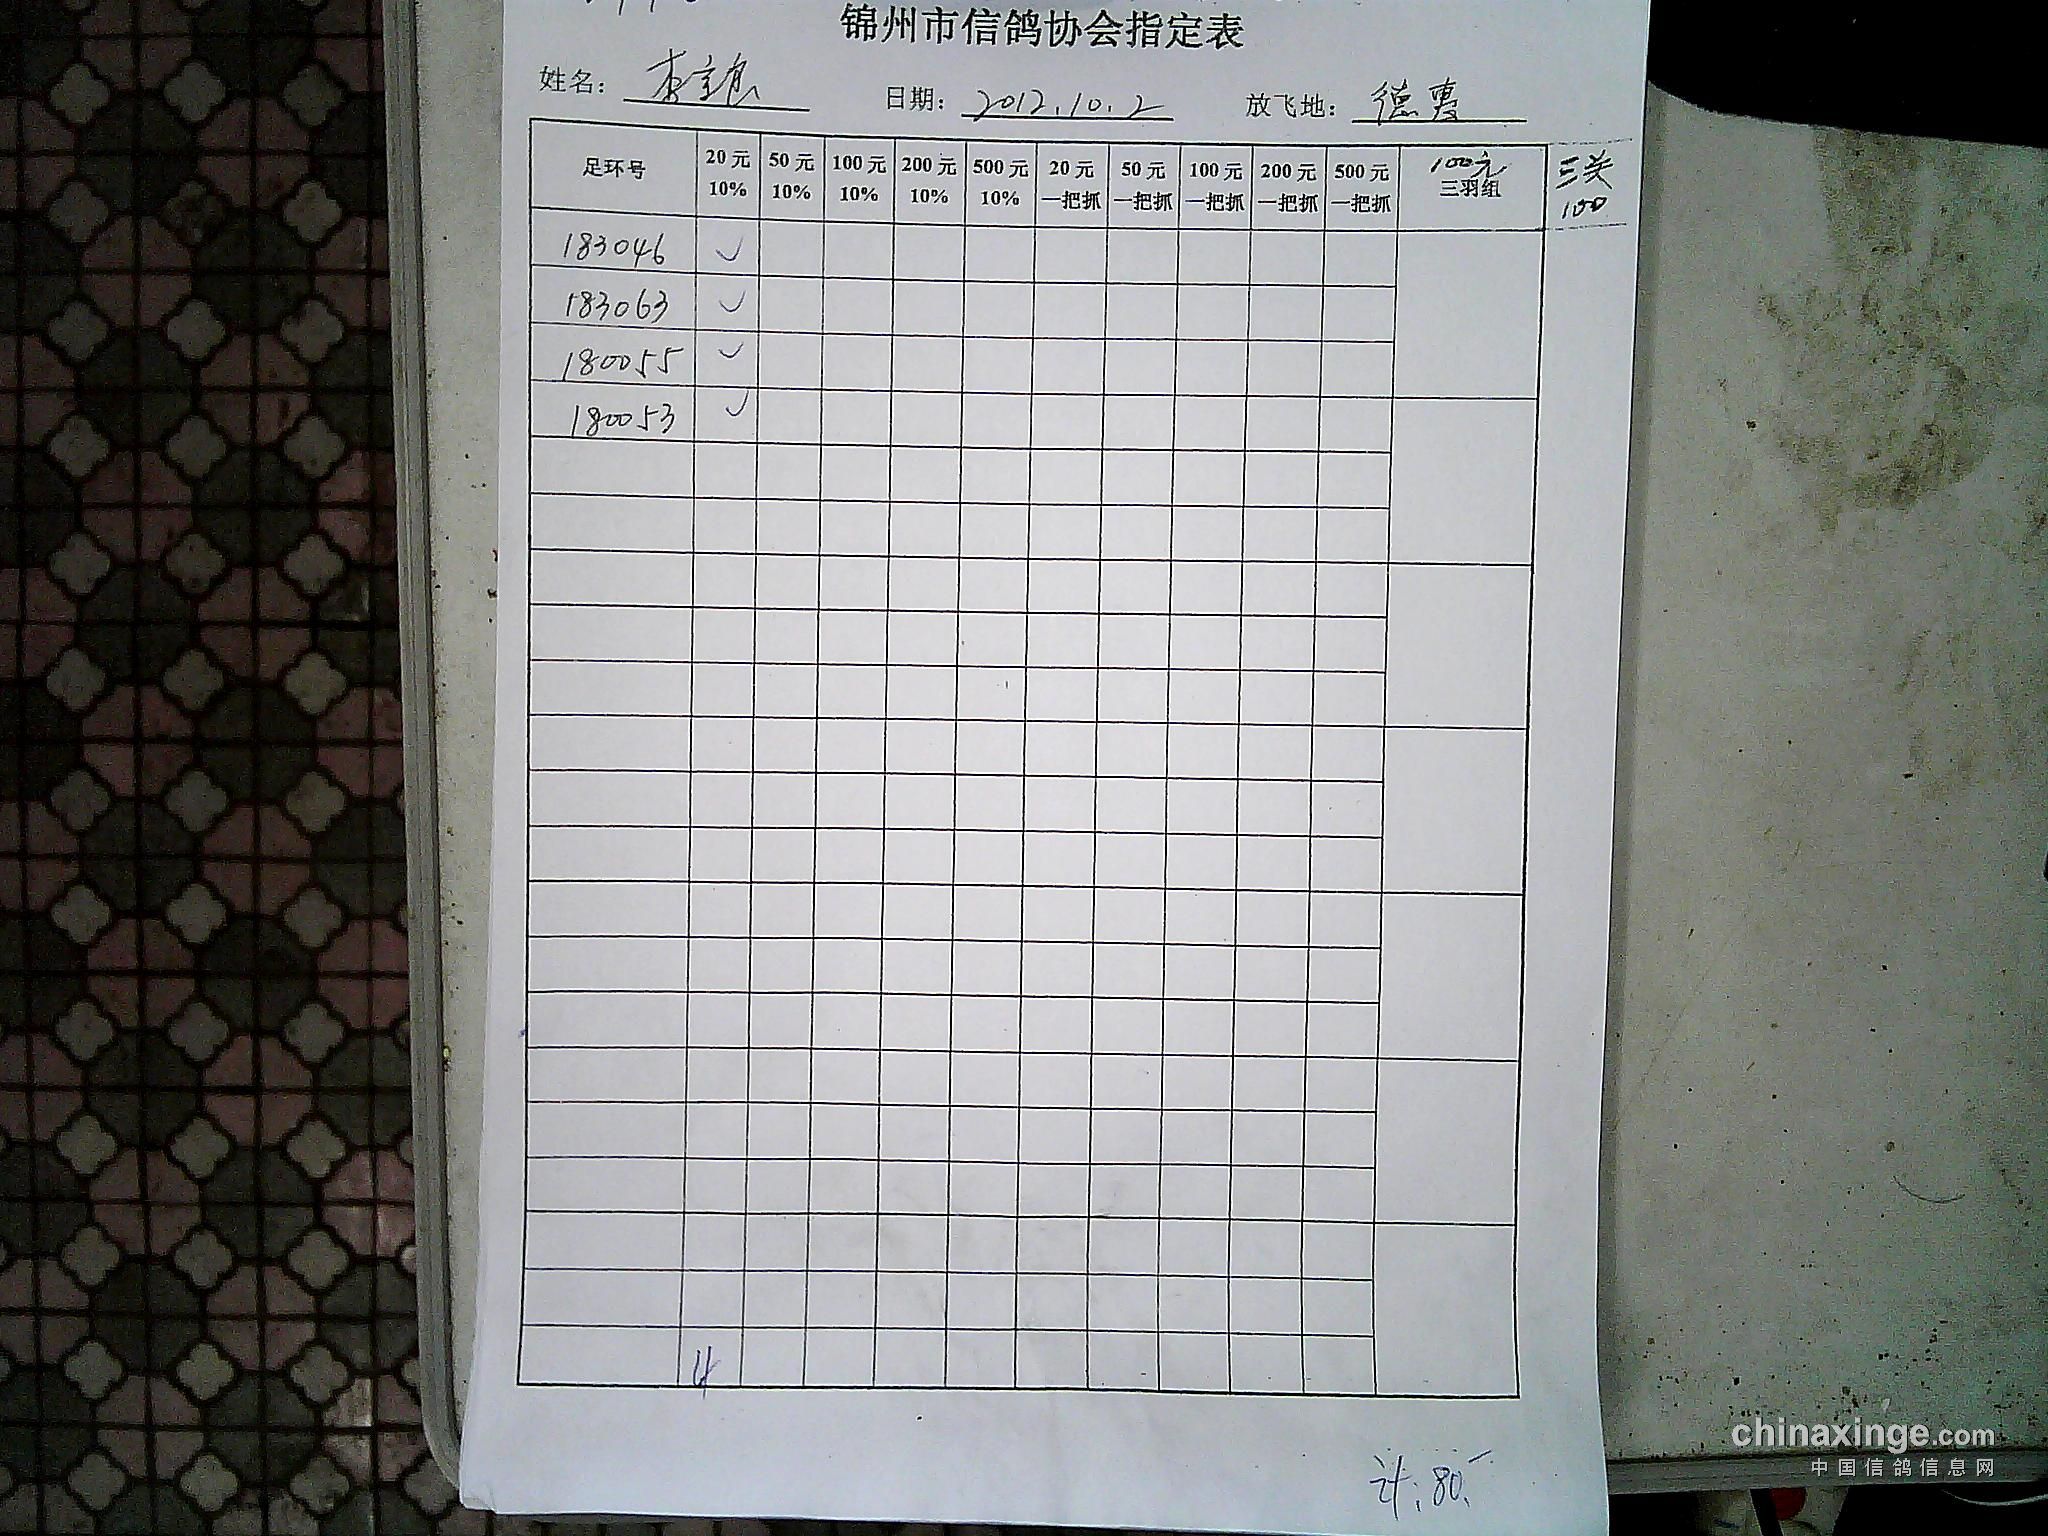 锦州市信鸽协会指定表
姓名： 日期：2012.10.2 放飞地：德惠
足环号 20元 10% 50元 10% 100元 10% 200元 10% 500元 10% 20元 一把抓 50元 一把抓 100元 一把抓 200元 一把抓 500元 一把抓 100元 三羽组 三关 100
183046 ✓
183063 ✓
180055 ✓
180053 ✓
4
计：80.
chinaxinge.com
中国信鸽信息网